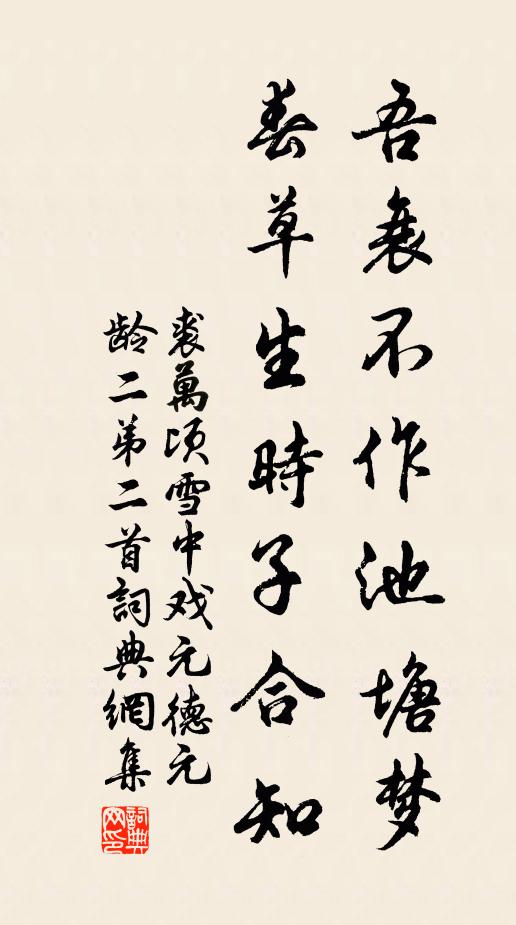 吾衰不作池塘梦
春草生時子合知
裘萬頃雪中戏元德元
龄二弟二首詞典網集
詞典网印